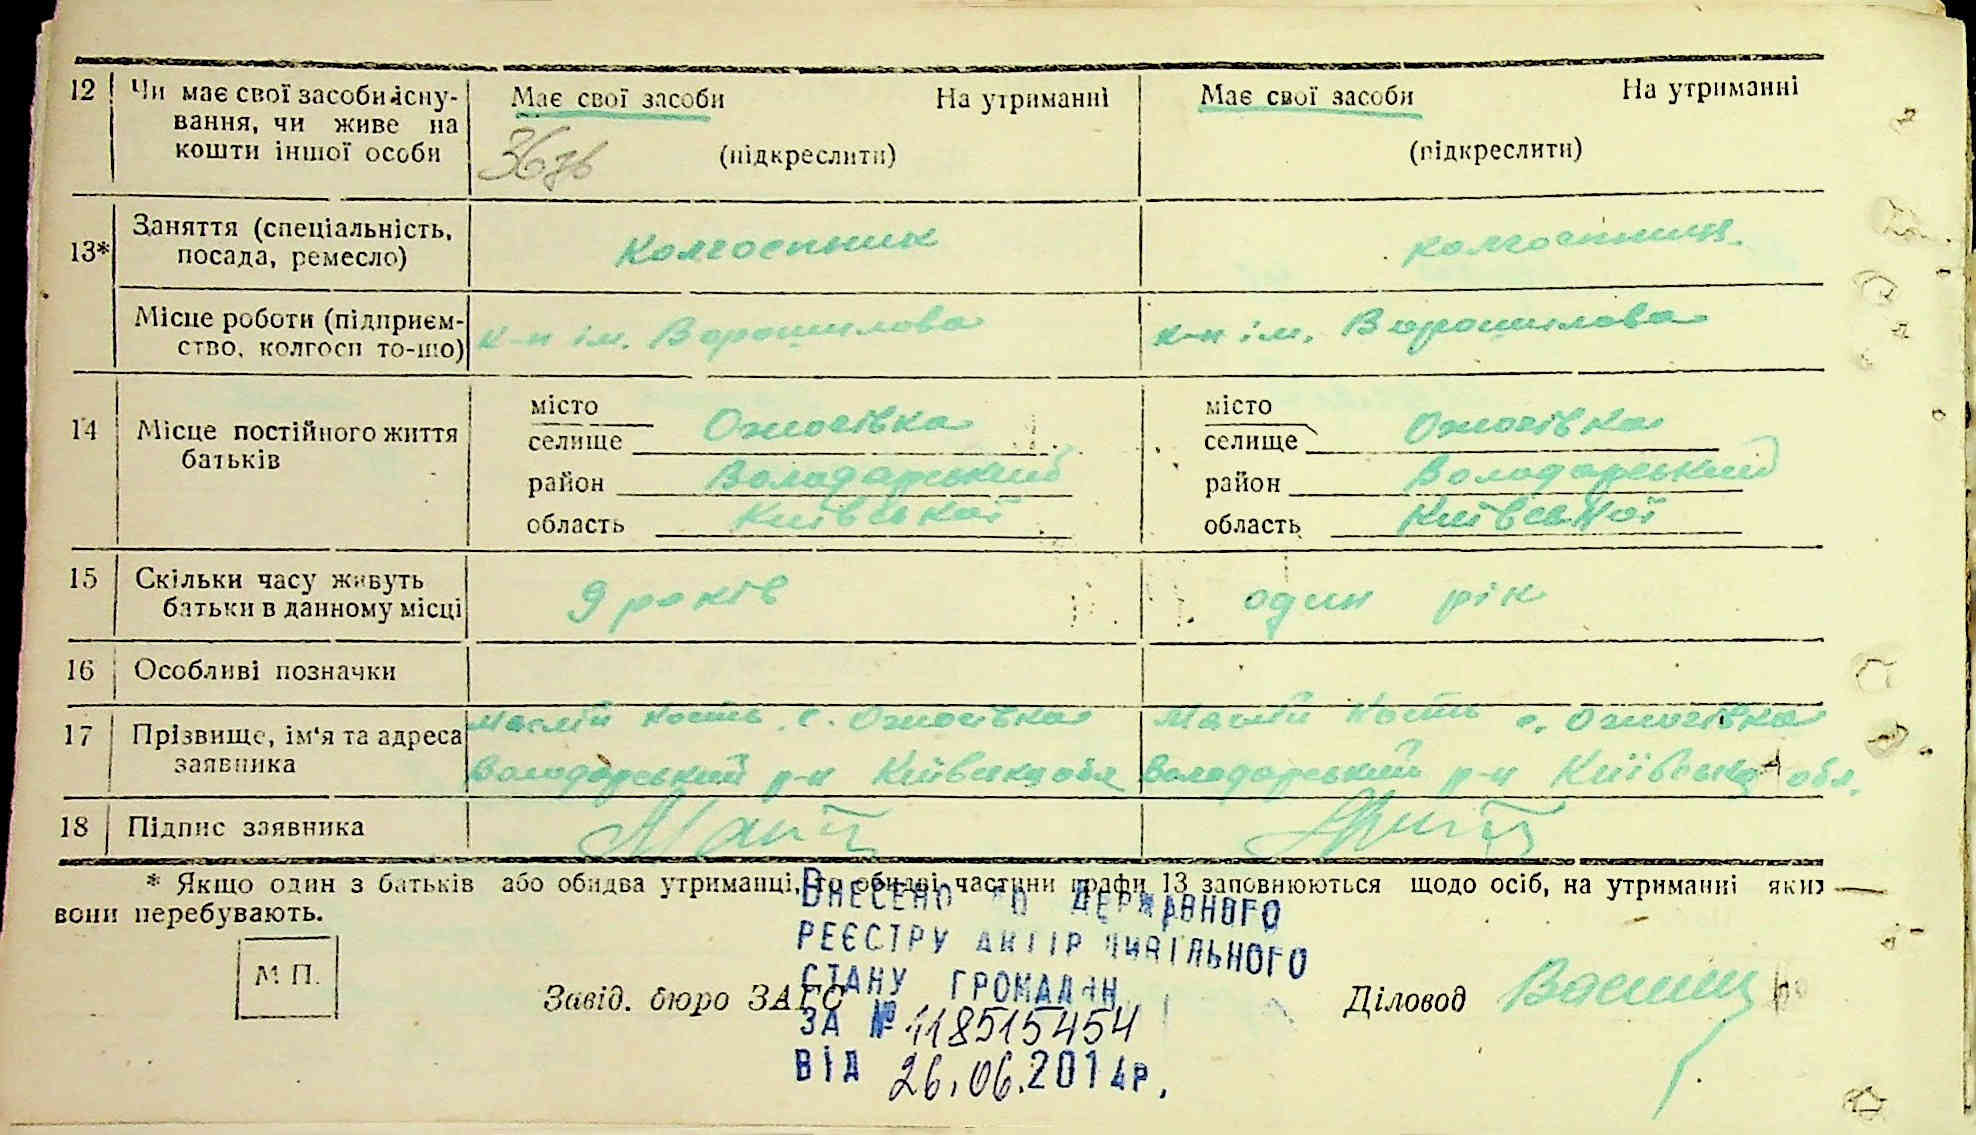 12 Чи має свої засоби існу-
вання, чи живе на
кошти іншої особи
Має свої засоби На утриманні
(підкреслити)
Має свої засоби На утриманні
(підкреслити)
13* Заняття (спеціальність,
посада, ремесло)
Колгоспник
колгоспниця
Місце роботи (підприєм-
ство, колгосп то-що)
к-п ім. Ворошилова
к-п ім. Ворошилова
14 Місце постійного життя
батьків
місто
селище Ожогівка
район Володарський
область Київської
місто
селище Ожогівка
район Володарський
область Київської
15 Скільки часу живуть
батьки в данному місці
9 років
один рік
16 Особливі позначки
17 Прізвище, ім'я та адреса
заявника
Маслій Кость с. Ожогівка
Володарський р-н Київська обл
Маслій Кость с. Ожогівка
Володарський р-н Київська обл.
18 Підпис заявника
* Якщо один з батьків або обидва утриманці, то обидві частини графи 13 заповнюються щодо осіб, на утриманні яких
вони перебувають.
М П.
Завід. бюро ЗАГС
Діловод
ВНЕСЕНО ДО ДЕРЖАВНОГО
РЕЄСТРУ АКТІВ ЦИВІЛЬНОГО
СТАНУ ГРОМАДЯН
ЗА № 118515454
ВІД 26.06.2014р.